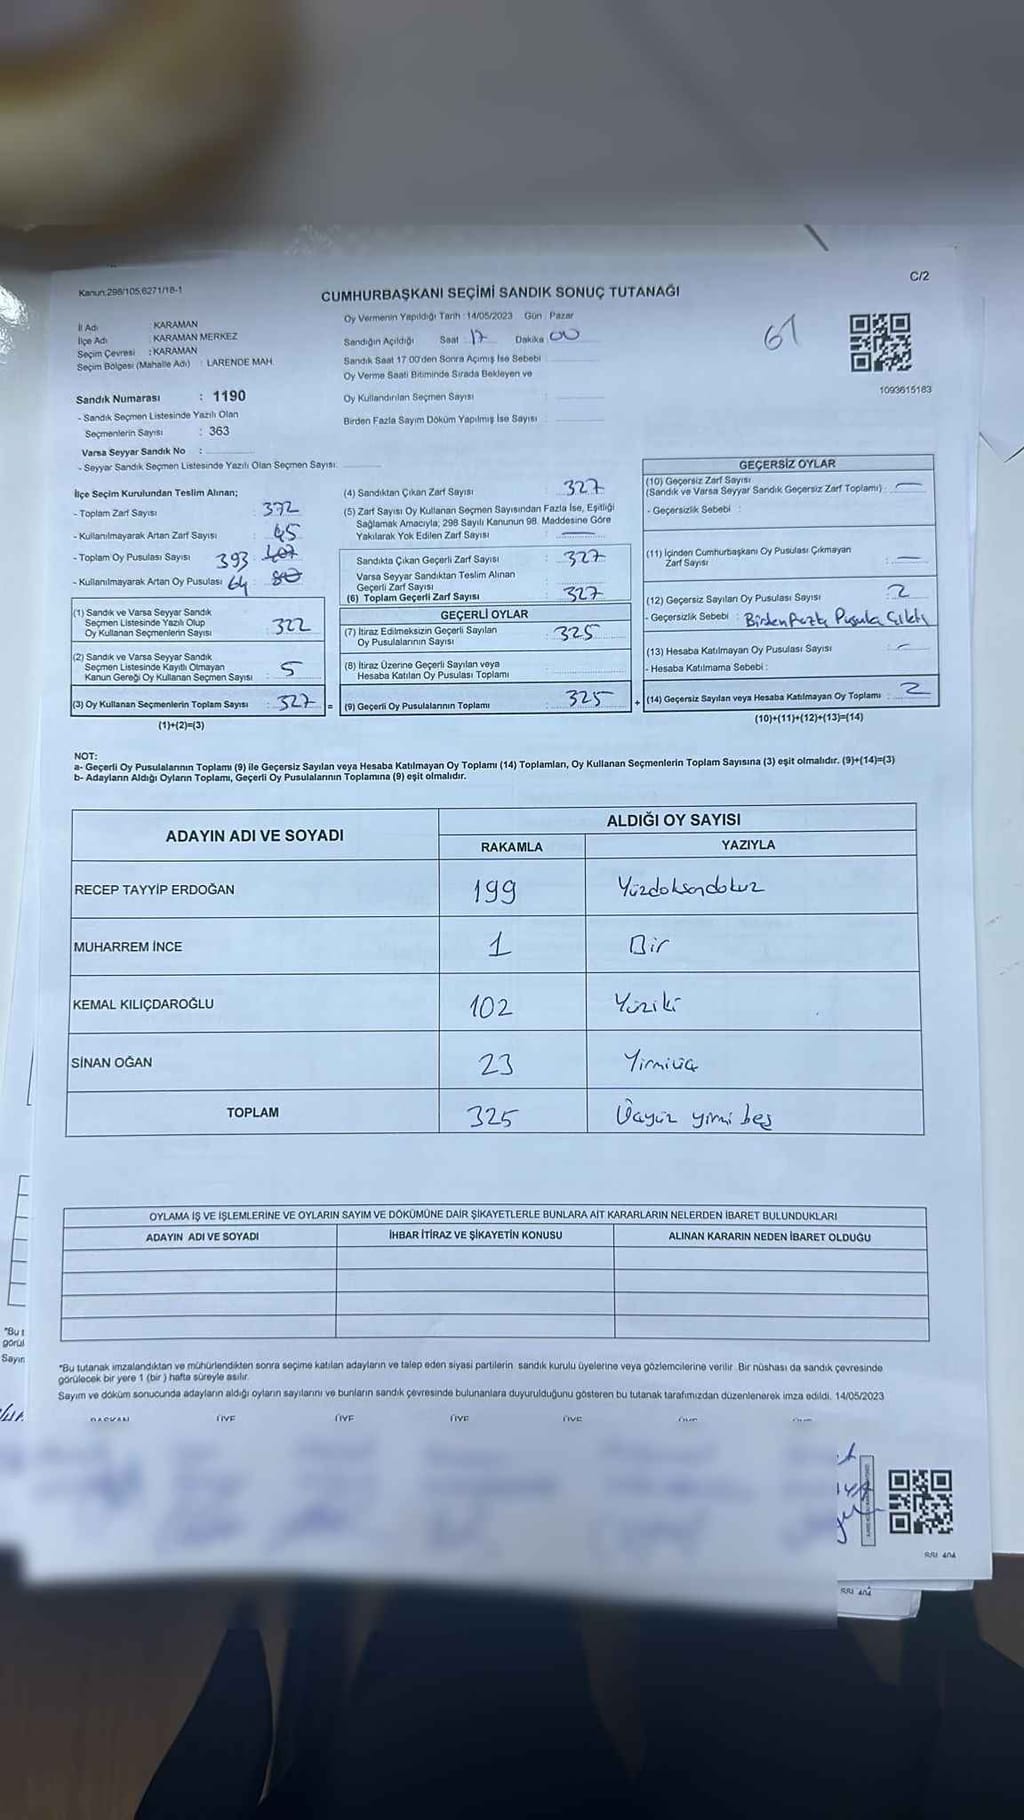 C/2
Kanun:298/105,6271/18-1
CUMHURBAŞKANI SEÇİMİ SANDIK SONUÇ TUTANAĞI
İl Adı KARAMAN
İlçe Adı : KARAMAN MERKEZ
Seçim Çevresi : KARAMAN
Seçim Bölgesi (Mahalle Adı) : LARENDE MAH.
Sandık Numarası : 1190
- Sandık Seçmen Listesinde Yazılı Olan
Seçmenlerin Sayısı : 363
Varsa Seyyar Sandık No :
- Seyyar Sandık Seçmen Listesinde Yazılı Olan Seçmen Sayısı:
Oy Vermenin Yapıldığı Tarih : 14/05/2023 Gün : Pazar
Sandığın Açıldığı Saat : 17 Dakika 00
Sandık Saat 17.00'den Sonra Açımış İse Sebebi
Oy Verme Saati Bitiminde Sırada Bekleyen ve
Oy Kullandırılan Seçmen Sayısı :
Birden Fazla Sayım Döküm Yapılmış İse Sayısı :
61
1093615163
İlçe Seçim Kurulundan Teslim Alınan;
- Toplam Zarf Sayısı : 372
- Kullanılmayarak Artan Zarf Sayısı : 45
- Toplam Oy Pusulası Sayısı 393
- Kullanılmayarak Artan Oy Pusulası 64 80
(1) Sandık ve Varsa Seyyar Sandık
Seçmen Listesinde Yazılı Olup
Oy Kullanan Seçmenlerin Sayısı : 322
(2) Sandık ve Varsa Seyyar Sandık
Seçmen Listesinde Kayıtlı Olmayan
Kanun Gereği Oy Kullanan Seçmen Sayısı : 5
(3) Oy Kullanan Seçmenlerin Toplam Sayısı : 327 =
(1)+(2)=(3)
(4) Sandıktan Çıkan Zarf Sayısı : 327
(5) Zarf Sayısı Oy Kullanan Seçmen Sayısından Fazla İse, Eşitliği
Sağlamak Amacıyla, 298 Sayılı Kanunun 98. Maddesine Göre
Yakılarak Yok Edilen Zarf Sayısı : —
Sandıkta Çıkan Geçerli Zarf Sayısı : 327
Varsa Seyyar Sandıktan Teslim Alınan
Geçerli Zarf Sayısı
(6) Toplam Geçerli Zarf Sayısı : 327
GEÇERLİ OYLAR
(7) İtiraz Edilmeksizin Geçerli Sayılan
Oy Pusulalarının Sayısı : 325
(8) İtiraz Üzerine Geçerli Sayılan veya
Hesaba Katılan Oy Pusulası Toplamı :
(9) Geçerli Oy Pusulalarının Toplamı : 325 +
GEÇERSİZ OYLAR
(10) Geçersiz Zarf Sayısı
(Sandık ve Varsa Seyyar Sandık Geçersiz Zarf Toplamı) : —
- Geçersizlik Sebebi :
(11) İçinden Cumhurbaşkanı Oy Pusulası Çıkmayan
Zarf Sayısı : —
(12) Geçersiz Sayılan Oy Pusulası Sayısı : 2
- Geçersizlik Sebebi : Birden fazla Pusula Çıktı
(13) Hesaba Katılmayan Oy Pusulası Sayısı : —
- Hesaba Katılmama Sebebi :
(14) Geçersiz Sayılan veya Hesaba Katılmayan Oy Toplamı : 2
(10)+(11)+(12)+(13)=(14)
NOT:
a- Geçerli Oy Pusulalarının Toplamı (9) ile Geçersiz Sayılan veya Hesaba Katılmayan Oy Toplamı (14) Toplamları, Oy Kullanan Seçmenlerin Toplam Sayısına (3) eşit olmalıdır. (9)+(14)=(3)
b- Adayların Aldığı Oyların Toplamı, Geçerli Oy Pusulalarının Toplamına (9) eşit olmalıdır.
ADAYIN ADI VE SOYADI ALDIĞI OY SAYISI
RAKAMLA YAZIYLA
RECEP TAYYİP ERDOĞAN 199 Yüzdoksandokuz
MUHARREM İNCE 1 Bir
KEMAL KILIÇDAROĞLU 102 Yüziki
SİNAN OĞAN 23 Yirmiüç
TOPLAM 325 Üçyüz yirmi beş
OYLAMA İŞ VE İŞLEMLERİNE VE OYLARIN SAYIM VE DÖKÜMÜNE DAİR ŞİKAYETLERLE BUNLARA AİT KARARLARIN NELERDEN İBARET BULUNDUKLARI
ADAYIN ADI VE SOYADI İHBAR İTİRAZ VE ŞİKAYETİN KONUSU ALINAN KARARIN NEDEN İBARET OLDUĞU
*Bu tutanak imzalandıktan ve mühürlendikten sonra seçime katılan adayların ve talep eden siyasi partilerin sandık kurulu üyelerine veya gözlemcilerine verilir. Bir nüshası da sandık çevresinde
görülecek bir yere 1 (bir) hafta süreyle asılır.
Sayım ve döküm sonucunda adayların aldığı oyların sayılarını ve bunların sandık çevresinde bulunanlara duyurulduğunu gösteren bu tutanak tarafımızdan düzenlenerek imza edildi. 14/05/2023
BAŞKAN ÜYE ÜYE ÜYE ÜYE ÜYE